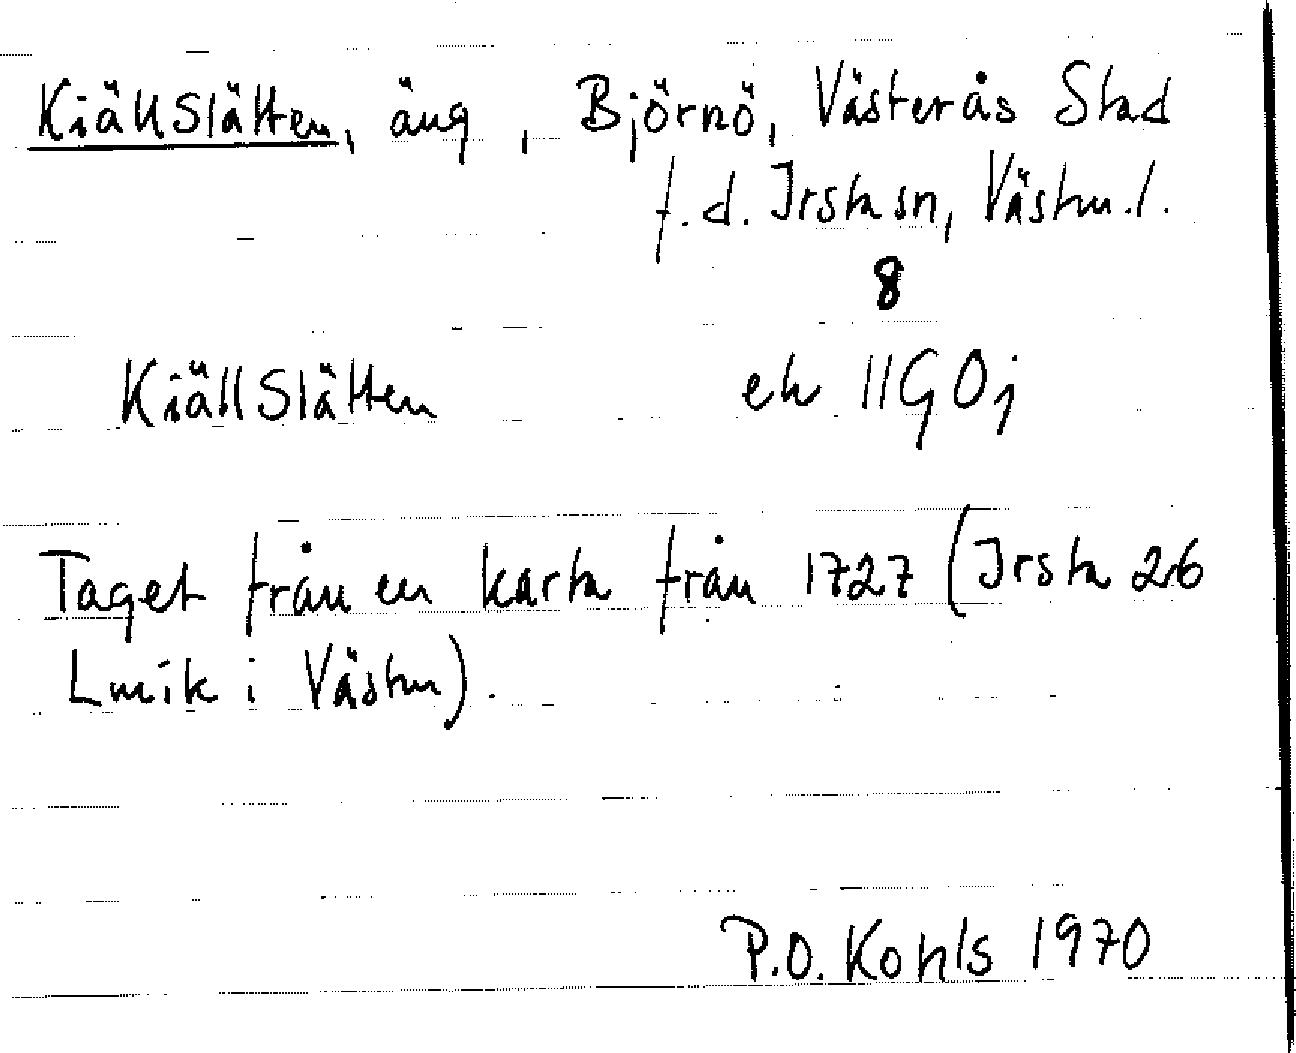 KiällSlätten, äng, Björnö, Västerås Stad
f.d. Irsta sn, Västm.l.
8
KiällSlätten ek 11G0j
Taget från en karta från 1727 (Irsta 26
Lmik i Västm).
P.O. Kohls 1970